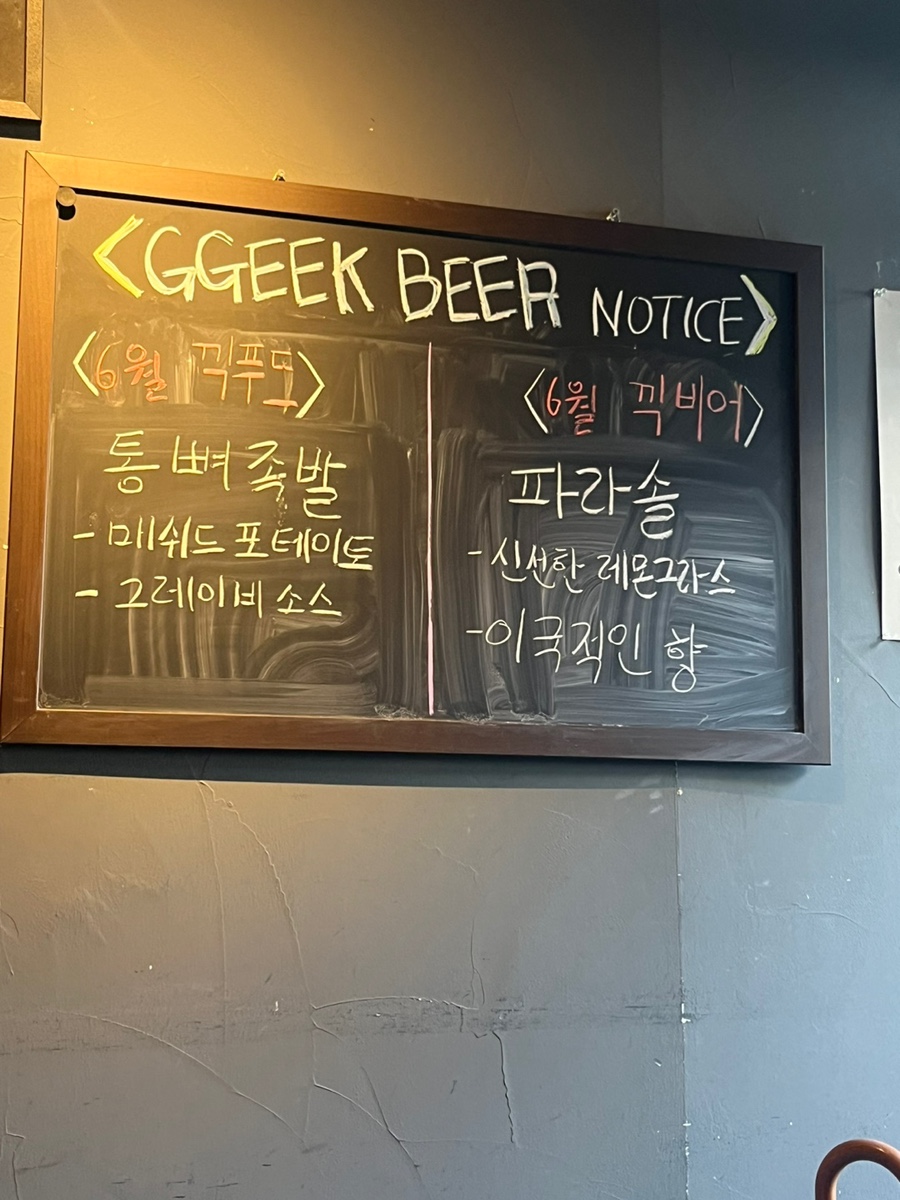 <GGEEK BEER NOTICE>
<6월 끽푸드>
통뼈족발
- 매쉬드 포테이토
- 그레이비소스
<6월 끽비어>
파라솔
- 신선한 레몬그라스
- 이국적인 향